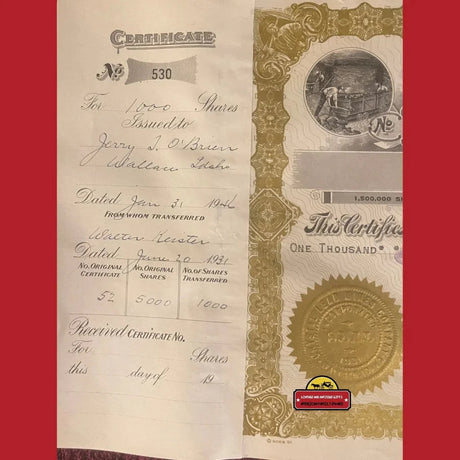 CERTIFICATE
No 530
For 1000 Shares
Issued to
Jerry J. O'Brien
Wallace Idaho
Dated Jan 31 1946
FROM WHOM TRANSFERRED
Walter Keister
Dated June 20 1931
NO. ORIGINAL CERTIFICATE
NO. ORIGINAL SHARES
NO. OF SHARES TRANSFERRED
52 5000 1000
Received CERTIFICATE NO.
For Shares
this day of 19
No
1,500,000 S
This Certifie
ONE THOUSAND